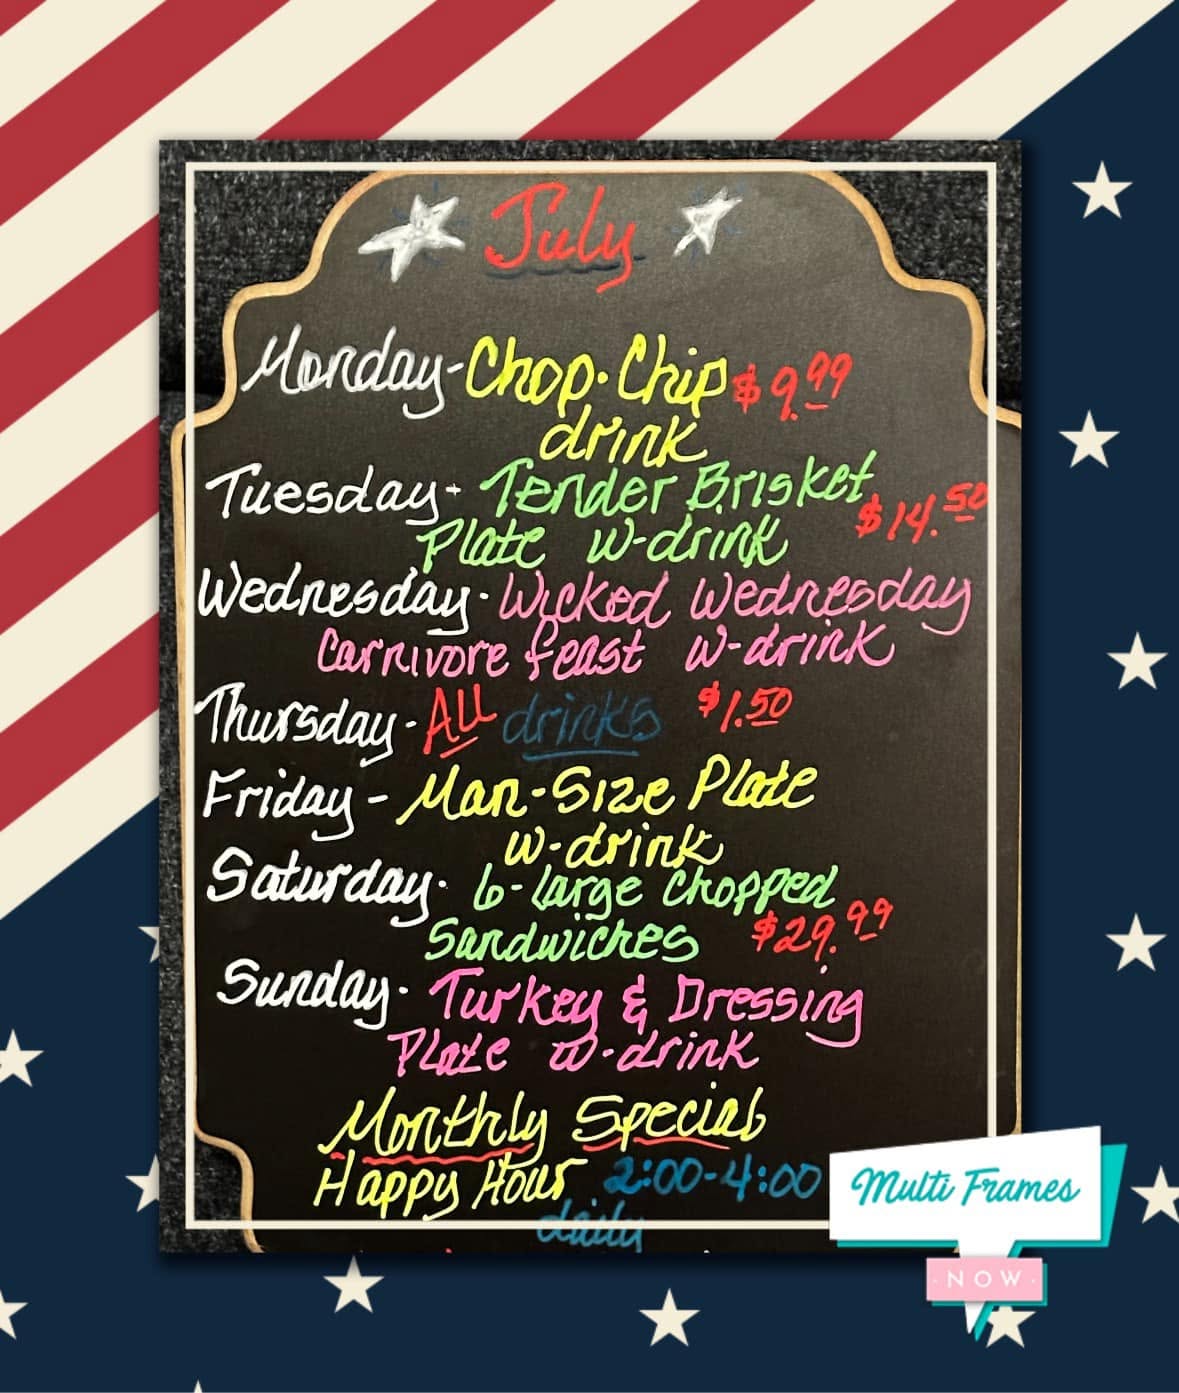 July
Monday-Chop·Chip $9.99
drink
Tuesday- Tender Brisket
Plate w-drink $14.50
Wednesday- Wicked Wednesday
Carnivore feast w-drink
Thursday- All drinks $1.50
Friday - Man-Size Plate
w-drink
Saturday- 6-large chopped
Sandwiches $29.99
Sunday- Turkey & Dressing
Plate w-drink
Monthly Special
Happy Hour 2:00-4:00
daily
Multi Frames
NOW